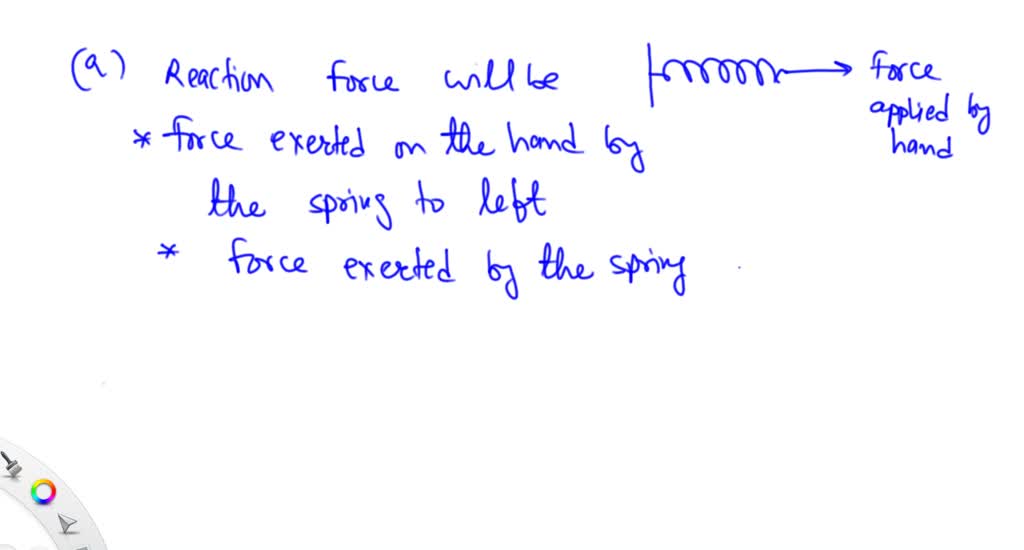 (a) Reaction force will be
* force exerted on the hand by
the spring to left
* force exerted by the spring
force
applied by
hand